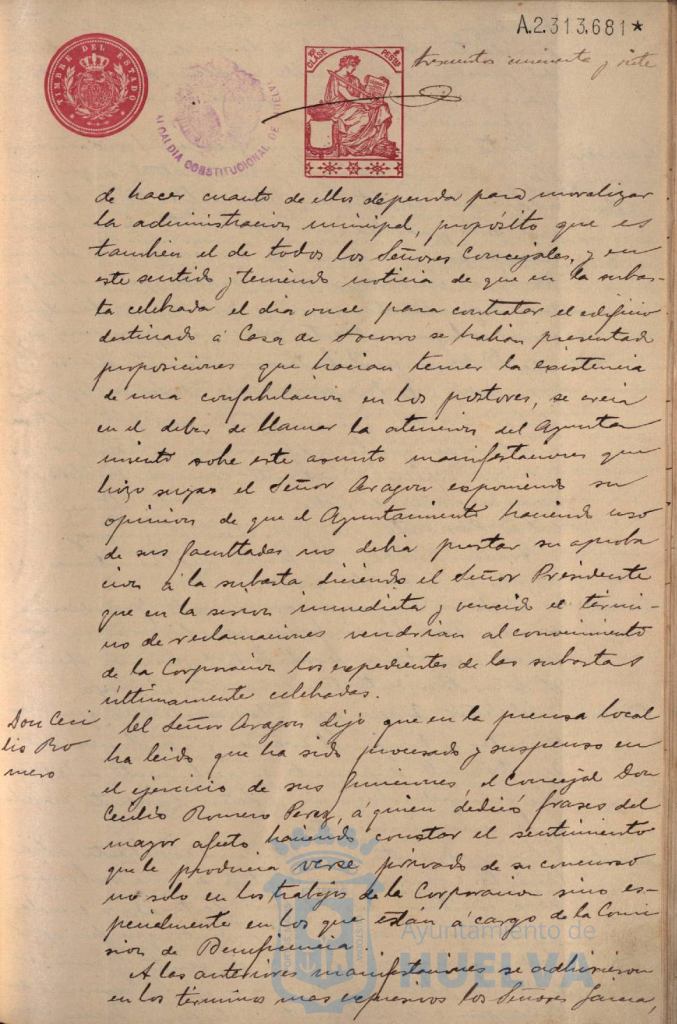 A.2.313.681*
trescientos cincuenta y siete
TIMBRE DEL ESTADO
ALCALDIA CONSTITUCIONAL DE HUELVA
CLASE
PESETA
de hacer cuanto de ellos dependa para moralizar
la administracion municipal, propósito que es
tambien el de todos los Señores Concejales, y en
este sentido y teniendo noticia de que en la subas-
ta celebrada el dia once para contratar el edificio
destinado á Casa de Socorro se habian presentado
proposiciones que hacian temer la existencia
de una confabulacion en los postores, se creia
en el deber de llamar la atencion del Ayunta
miento sobre este asunto manifestaciones que
hizo suyas el Señor Aragon exponiendo su
opinion de que el Ayuntamiento haciendo uso
de sus facultades no debia prestar su aproba
cion á la subasta diciendo el Señor Presidente
que en la sesion inmediata y vencido el térmi-
no de reclamaciones vendrian al conocimiento
de la Corporacion los expedientes de las subastas
últimamente celebradas.
Don Ceci
lio Ro
mero
El Señor Aragon dijo que en la prensa local
ha leido que ha sido procesado y suspenso en
el ejercicio de sus funciones, el Concejal Don
Cecilio Romero Perez, á quien dedicó frases del
mayor afecto haciendo constar el sentimiento
que le producia verse privado de su concurso
no solo en los trabajos de la Corporacion sino es-
pecialmente en los que están á cargo de la Comi
sion de Beneficencia.
A las anteriores manifestaciones se adhirieron
en los términos mas expresivos los Señores Garcia,
Ayuntamiento de
HUELVA